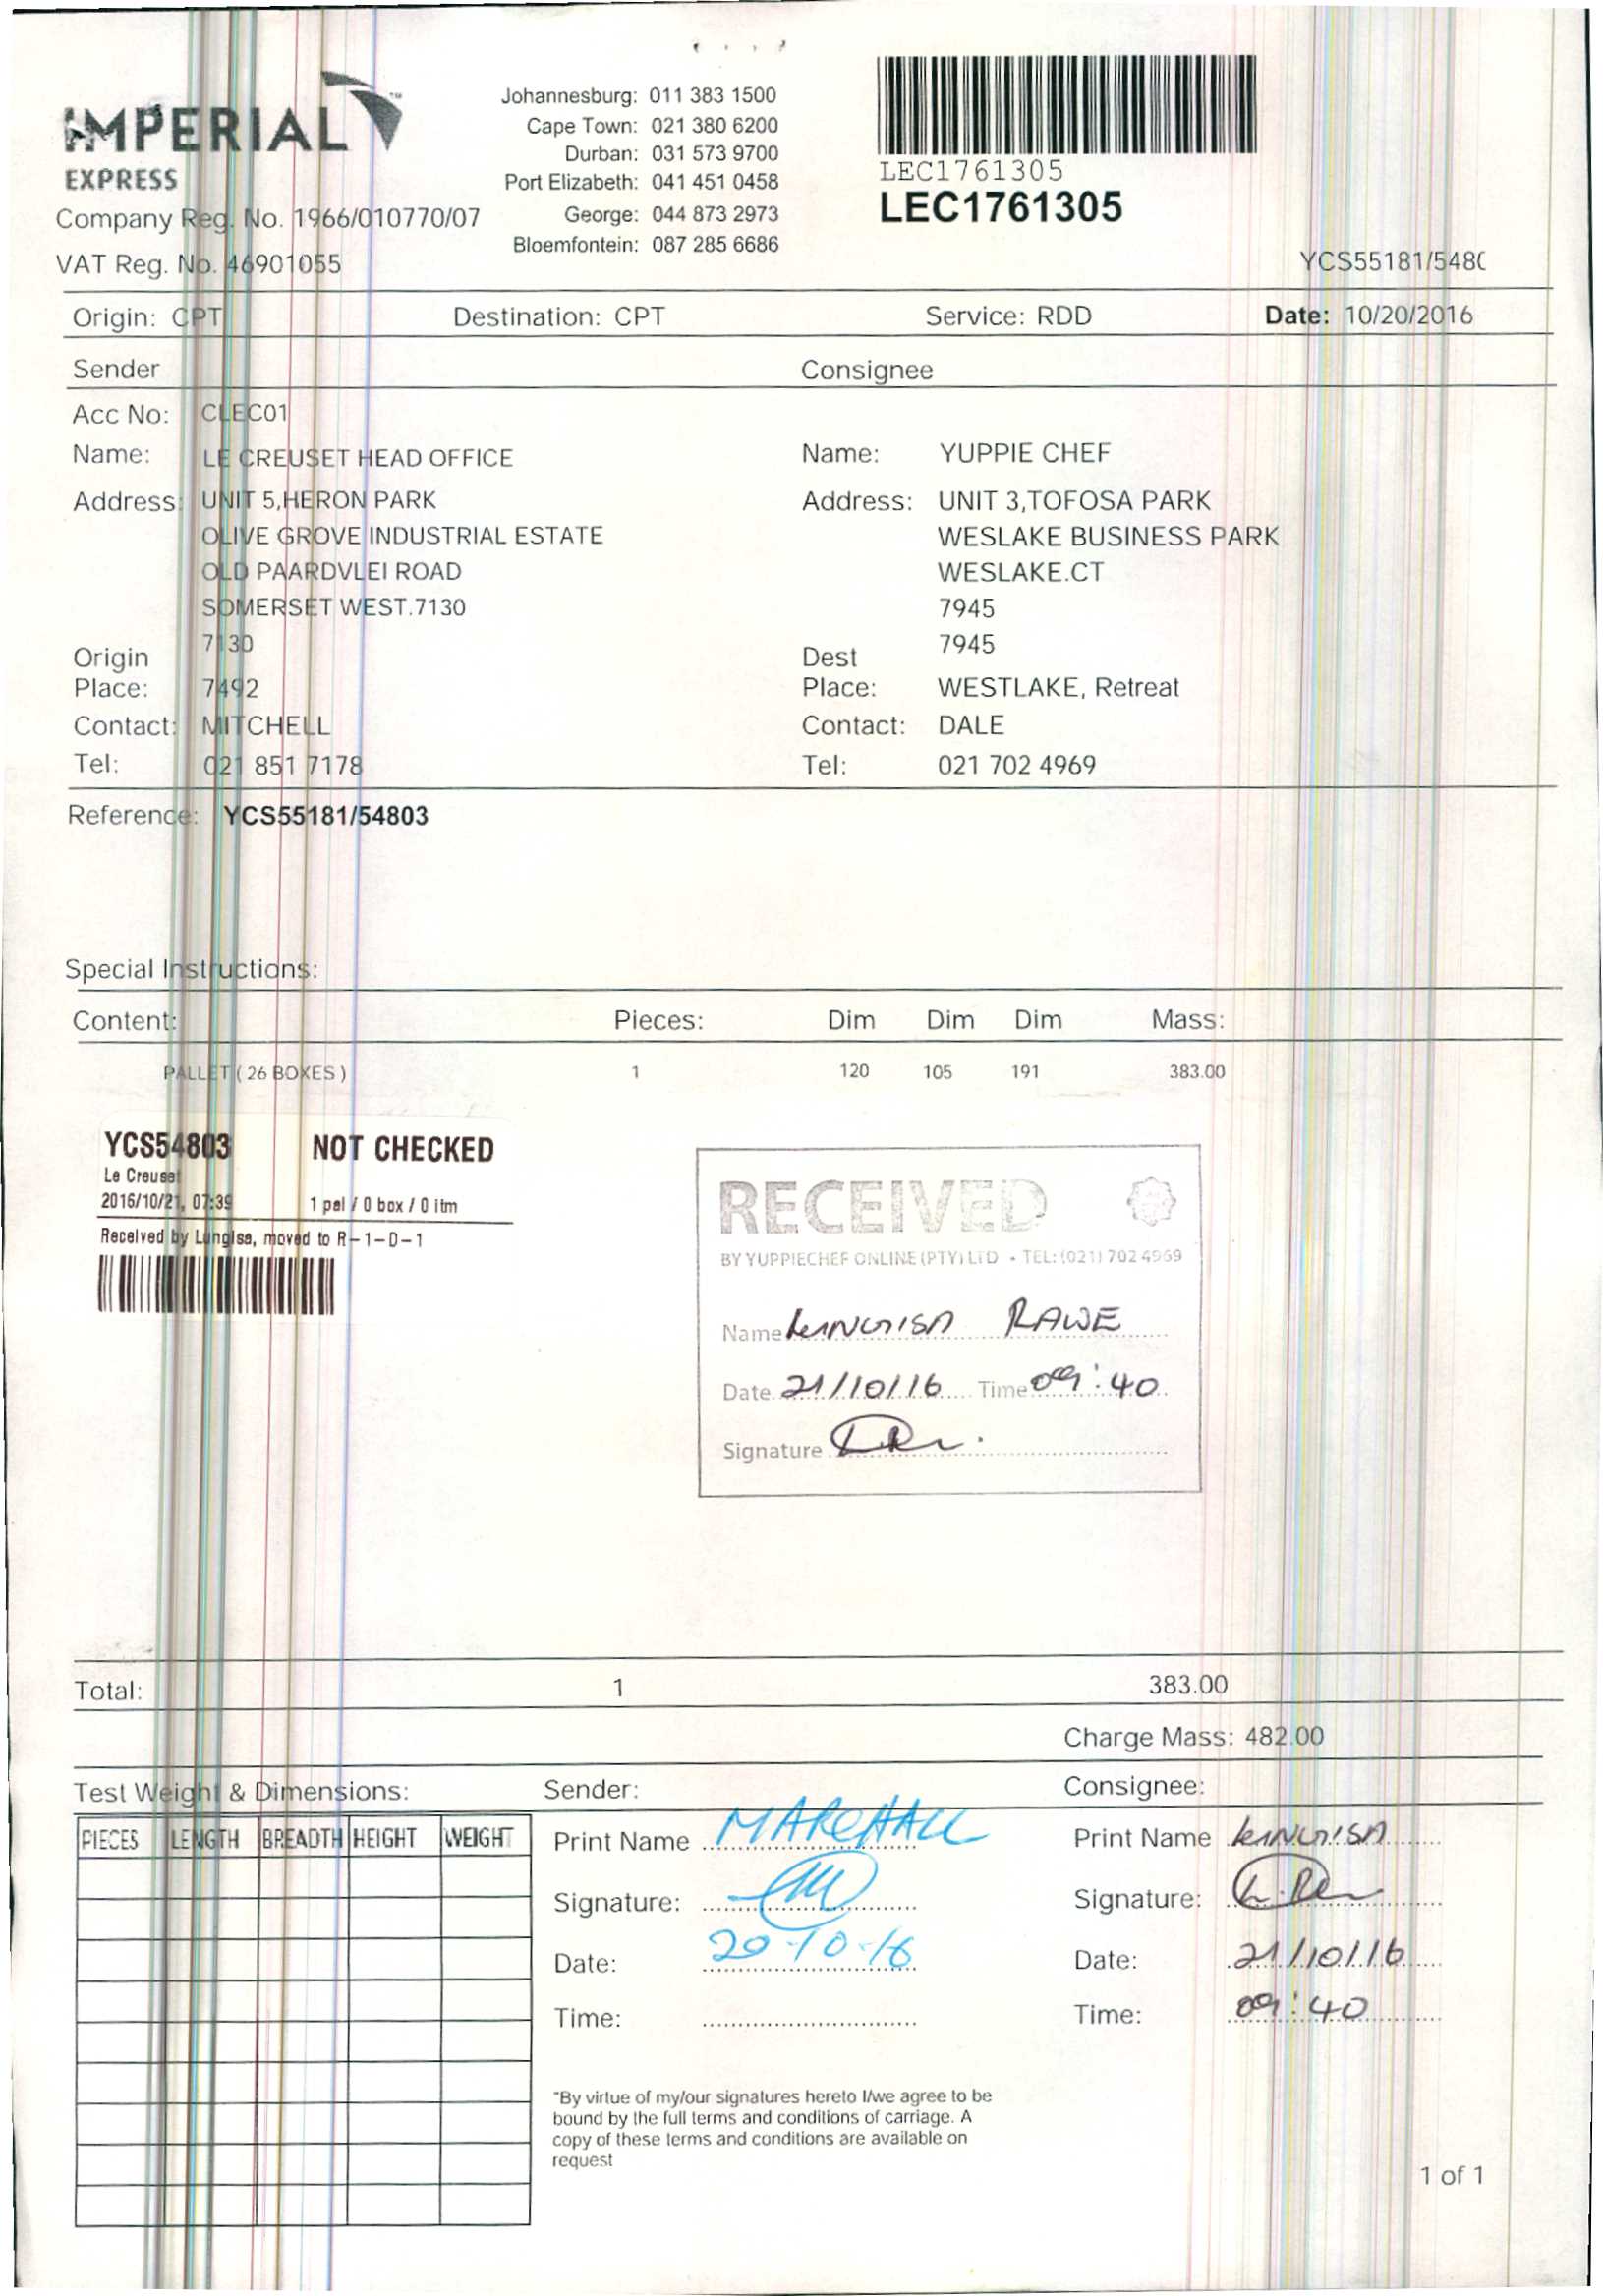 IMPERIAL
EXPRESS
Company Reg. No. 1966/010770/07
VAT Reg. No. 46901055
Johannesburg: 011 383 1500
Cape Town: 021 380 6200
Durban: 031 573 9700
Port Elizabeth: 041 451 0458
George: 044 873 2973
Bloemfontein: 087 285 6686
LEC1761305
LEC1761305
YCS55181/5480
Origin: CPT Destination: CPT Service: RDD Date: 10/20/2016
Sender Consignee
Acc No: CLEC01
Name: LE CREUSET HEAD OFFICE Name: YUPPIE CHEF
Address: UNIT 5,HERON PARK Address: UNIT 3,TOFOSA PARK
OLIVE GROVE INDUSTRIAL ESTATE WESLAKE BUSINESS PARK
OLD PAARDVLEI ROAD WESLAKE.CT
SOMERSET WEST.7130 7945
7130 7945
Origin Dest
Place: 7492 Place: WESTLAKE, Retreat
Contact: MITCHELL Contact: DALE
Tel: 021 851 7178 Tel: 021 702 4969
Reference: YCS55181/54803
Special Instructions:
Content: Pieces: Dim Dim Dim Mass:
PALLET ( 26 BOXES ) 1 120 105 191 383.00
YCS54803 NOT CHECKED
Le Creuset
2016/10/21, 07:39 1 pal / 0 box / 0 itm
Received by Lungisa, moved to R-1-D-1
RECEIVED
BY YUPPIECHEF ONLINE (PTY) LTD • TEL: (021) 702 4969
Name RAWE
Date 21/10/16 Time 09:40
Signature
Total: 1 383.00
Charge Mass: 482.00
Test Weight & Dimensions: Sender: Consignee:
PIECES LENGTH BREADTH HEIGHT WEIGHT
Print Name MARCHALL Print Name
Signature: Signature:
Date: 20-10-16 Date: 21/10/16
Time: Time: 09:40
"By virtue of my/our signatures hereto I/we agree to be
bound by the full terms and conditions of carriage. A
copy of these terms and conditions are available on
request
1 of 1